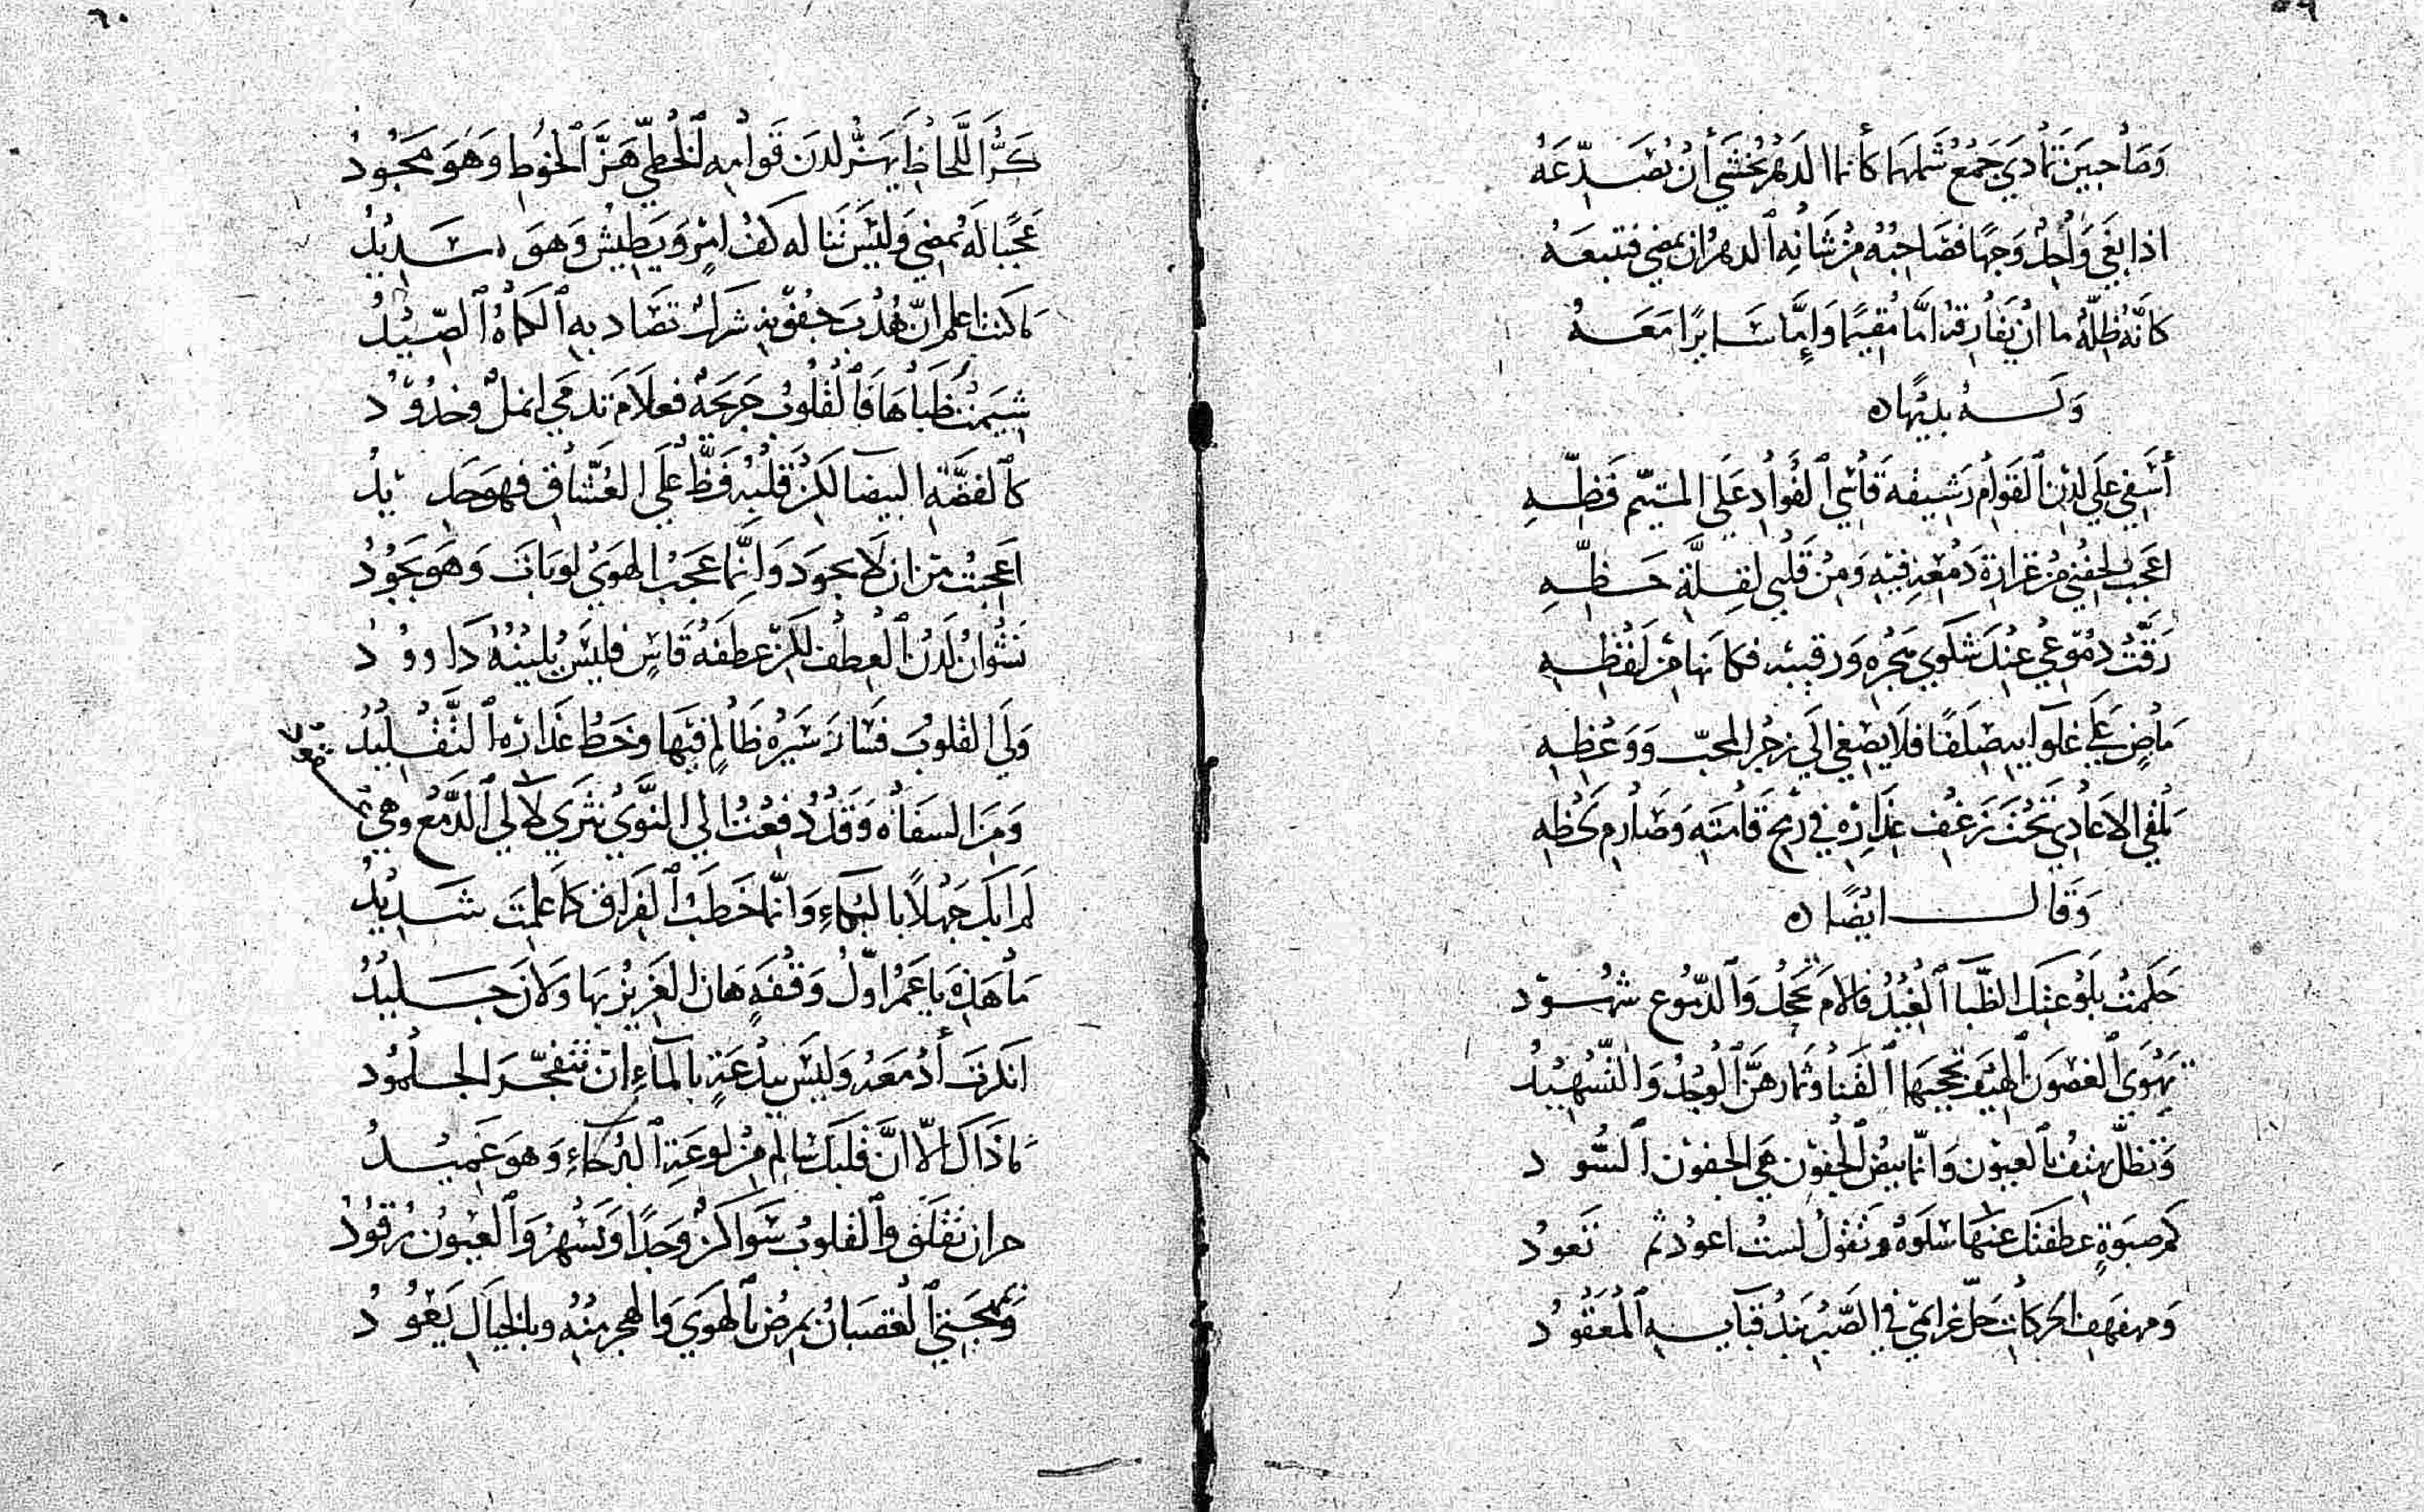 ٥٩
وَصَاحِبَينِ تمادي جَمْعُ شَملهَا كأنما الدَهرُ يخشَي أن يُصَدّعَهُ
اذا بغَي وَاحِدٌ وَجهًا فصَاحِبُهُ مِنْ شَانِهِ الدهرَ ان يمضي فتتبعَهُ
كانّهُ ظِلّهُ ما انْ يُفَارقهُ امَّا مُقيمًا وَإِمَّا سَايرًا مَعَهُ
وَلَهُ بديهًا
أسَفِي عَلَي لدِنِ القَوَامِ رَشيقه قَاسِي الفُوَادِ عَلَي المتيّم فَظِّهِ
اعجَبْ لجفني مِنْ غزارة دَمْعِهِ فيهِ وَمِنْ قَلبي لقِلَّةِ حَظِّهِ
رَقَّتْ دُمُوعي عِندَ شكوَي هَجْرِهِ وَرقيبه فكانها مِنْ لَفْظِهِ
مَاضٍ عَلَي غلَوآيه صَلَفًا فلا يصْغِي الَي زجْرِ المحبّ وَوَعْظِهِ
يَلْقَي الاعَادِي تَحْتَ زَعْفِ عِذَارِهِ في رُمحِ قَامَتِهِ وَصَارِمِ لَحْظِهِ
وَقَالَ ايضًا
حَكمتْ بلَوْعتِكَ الظّبَآ الغِيْدُ فالامَ تجحَدُ وَالدّمُوع شهُوْد
يهْوَي الغصُونَ الهيفَ تحجبَها القنَا وثمارهنَّ الوجْدُ وَالتّسْهيْدُ
وَتظلّ تهتفُ بالعيون وَانّما بيضُ الجفون هي الجفون السُّود
كم صبوَةٍ عطفتكَ عنهَا سَلوَةٌ وَتقولُ لستُ اعُود ثمّ تَعودُ
وَمهفهف الحركات حَلّ غرائمي في الصَّبْرِ بَندُ قبَآيهِ المُعَقُودُ
٦٠
كَرُّ اللَّحَاظِ يهزّ لدنَ قَوامهِ الخَطّيّ هَزَّ الخوُطِ وَهوَ مَجُودُ
عَجَبًا لَهُ يُمضي وَليْسَ تَنَاله كفُّ امرٍ وَيَطِيْشُ وَهوَ سَدِيْدُ
مَا كنتُ اعلم انّ هُدْبَ جفونهِ شركٌ تصَاد بهِ الكمَاةُ الصّيْدُ
شِيمَتْ ظُبَاهَا فَالْقلُوبُ جَريحَةٌ فعلَامَ تدمي انملٌ وخدُوُد
كالفضّةِ البيضا لكن قَلْبُهُ فَظٌّ عَلَي العُشّاقِ فهوَ حَدِيْدُ
اعجبْتَ مِن ان لَا يجودَ وَانّما عَجَبُ الهوَي لوْ بَاتَ وَهوَ يَجُوُدُ
نَشْوانُ لَدْنُ العِطْفِ لكنْ عِطفَهُ قَاسٍ فليْسَ يُلينُهُ دَاوُودُ
وَلي القلوبَ فسَارَ سَيْرهُ ظَالمٍ فيهَا وخَطُّ عذارِه التّقْلِيْدُ
وَمِنَ السفَاهَ وَقَدْ دُفِعْتُ الي النّوَي نثري لآلي الدّمْعِ وهيَ عقود
لَم ابك جَهلًا بالبكآءِ وَانّما خَطبُ الفراقِ كمَا علِمتَ شَدِيْدُ
مَا هَذِهِ يا عَمرُ اوّلُ وَقفَةٍ هَان العَزيز بهَا وَلانَ جَلِيْدُ
انكرتَ أدْمعَهُ وَليْسَ ببِدْعَةٍ بالمآءِ ان تتفجّرَ الجلمُود
مَا ذَاكَ الّا انَّ قَلبكَ سَالم مِن لوعَةِ البُرَحَآءِ وَهوَ عَمِيْدُ
حران تقلق وَالقلوبُ سَواكنٌ وَجدًا وَيَسْهرُ وَالعيون رُقوُدُ
وَبمهجَتي الغضبَانُ يمرضُ بالهوَي وَالهجر منْهُ وبالخيَالِ يَعُوُدُ